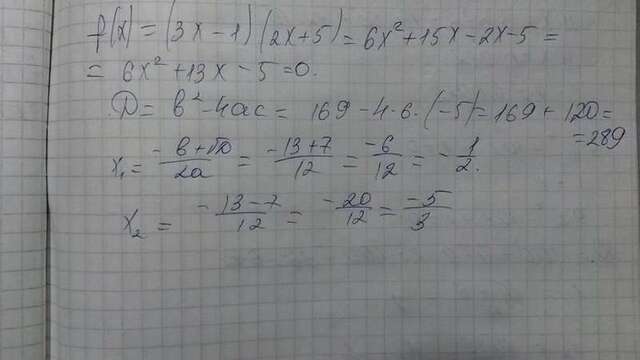 f(x) = (3x-1)(2x+5) = 6x²+15x-2x-5 =
= 6x²+13x-5=0.
D = b²-4ac = 169-4·6·(-5)=169+120=
=289
x₁ = (-b+√D)/2a = (-13+7)/12 = -6/12 = -1/2.
x₂ = (-13-7)/12 = -20/12 = -5/3